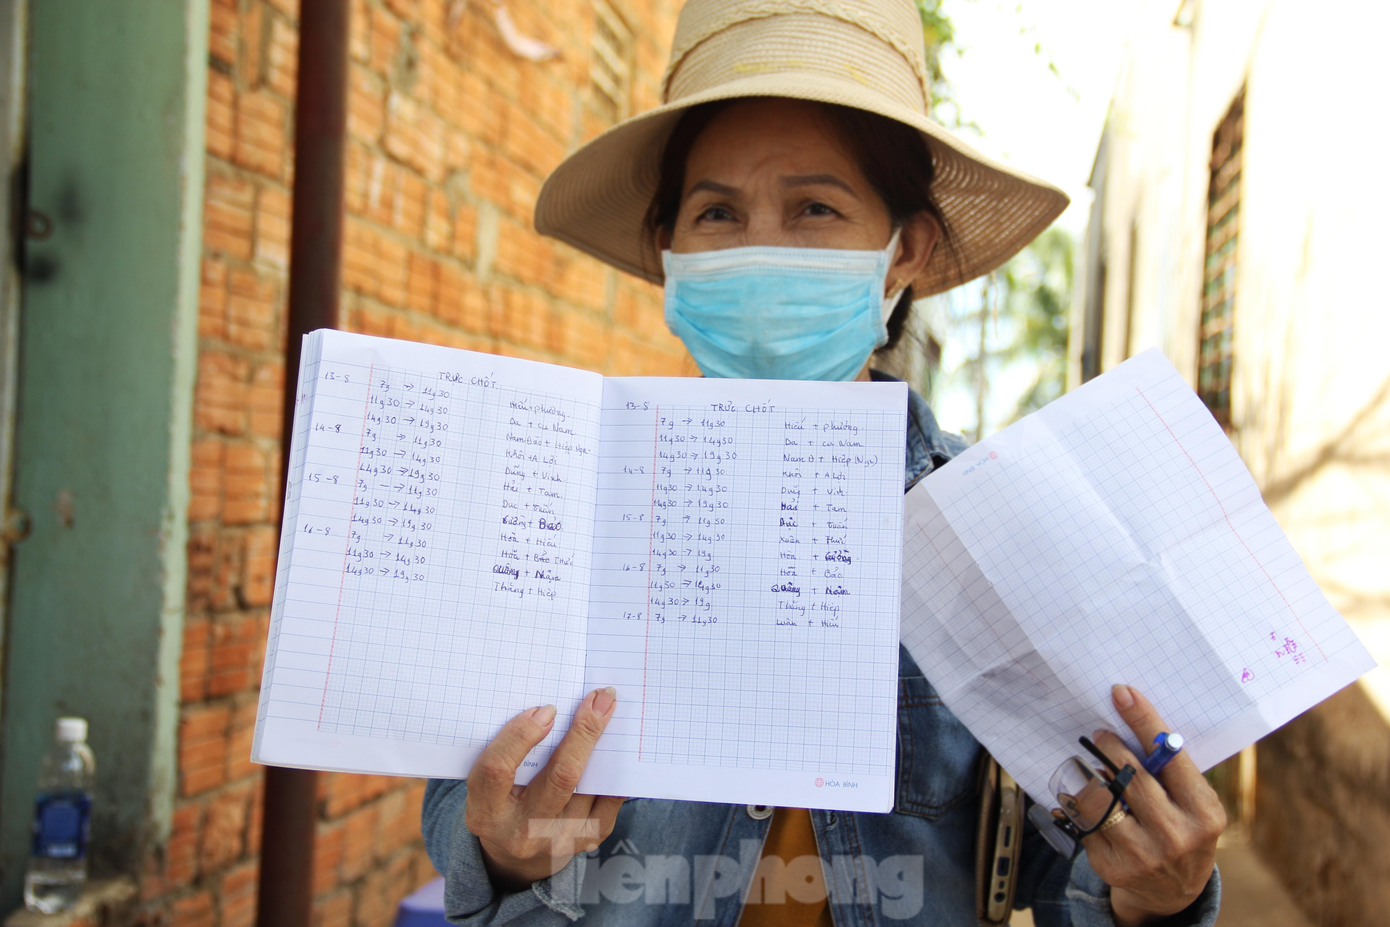 TRỰC CHỐT
13-8 7g → 11g30 Hiếu + phường
11g30 → 14g30 Da + cu Nam
14g30 → 19g30 Nam Đảo + Hiệp
14-8 7g → 11g30 Khôi + A Lời
11g30 → 14g30 Dũng + Vinh
14g30 → 19g30 Hải + Tam
15-8 7g → 11g30 Dục + Tuấn
11g30 → 14g30
14g30 → 19g30 Hòa + Hiếu
16-8 7g → 11g30 Hòa +
11g30 → 14g30 Quãng +
14g30 → 19g30 Thắng + Hiệp
BÌNH
TRỰC CHỐT
13-8 7g → 11g30 Hiếu + phường
11g30 → 14g30 Da + cu Nam
14g30 → 19g30 Nam Đ + Hiệp (Ngc)
14-8 7g → 11g30 Khôi + A Lời
11g30 → 14g30 Dũng + Vinh
14g30 → 19g30 Hải + Tam
15-8 7g → 11g30 Dục + Tuấn
11g30 → 14g30 Xuân +
14g30 → 19g Hòa +
16-8 7g → 11g30 Hòa + Bảo
11g30 → 14g30 Quãng +
14g30 → 19g Thắng + Hiệp
17-8 7g → 11g30 Luân + Hiếu
HÒA BÌNH
HÒA BÌNH
Tiềnphong